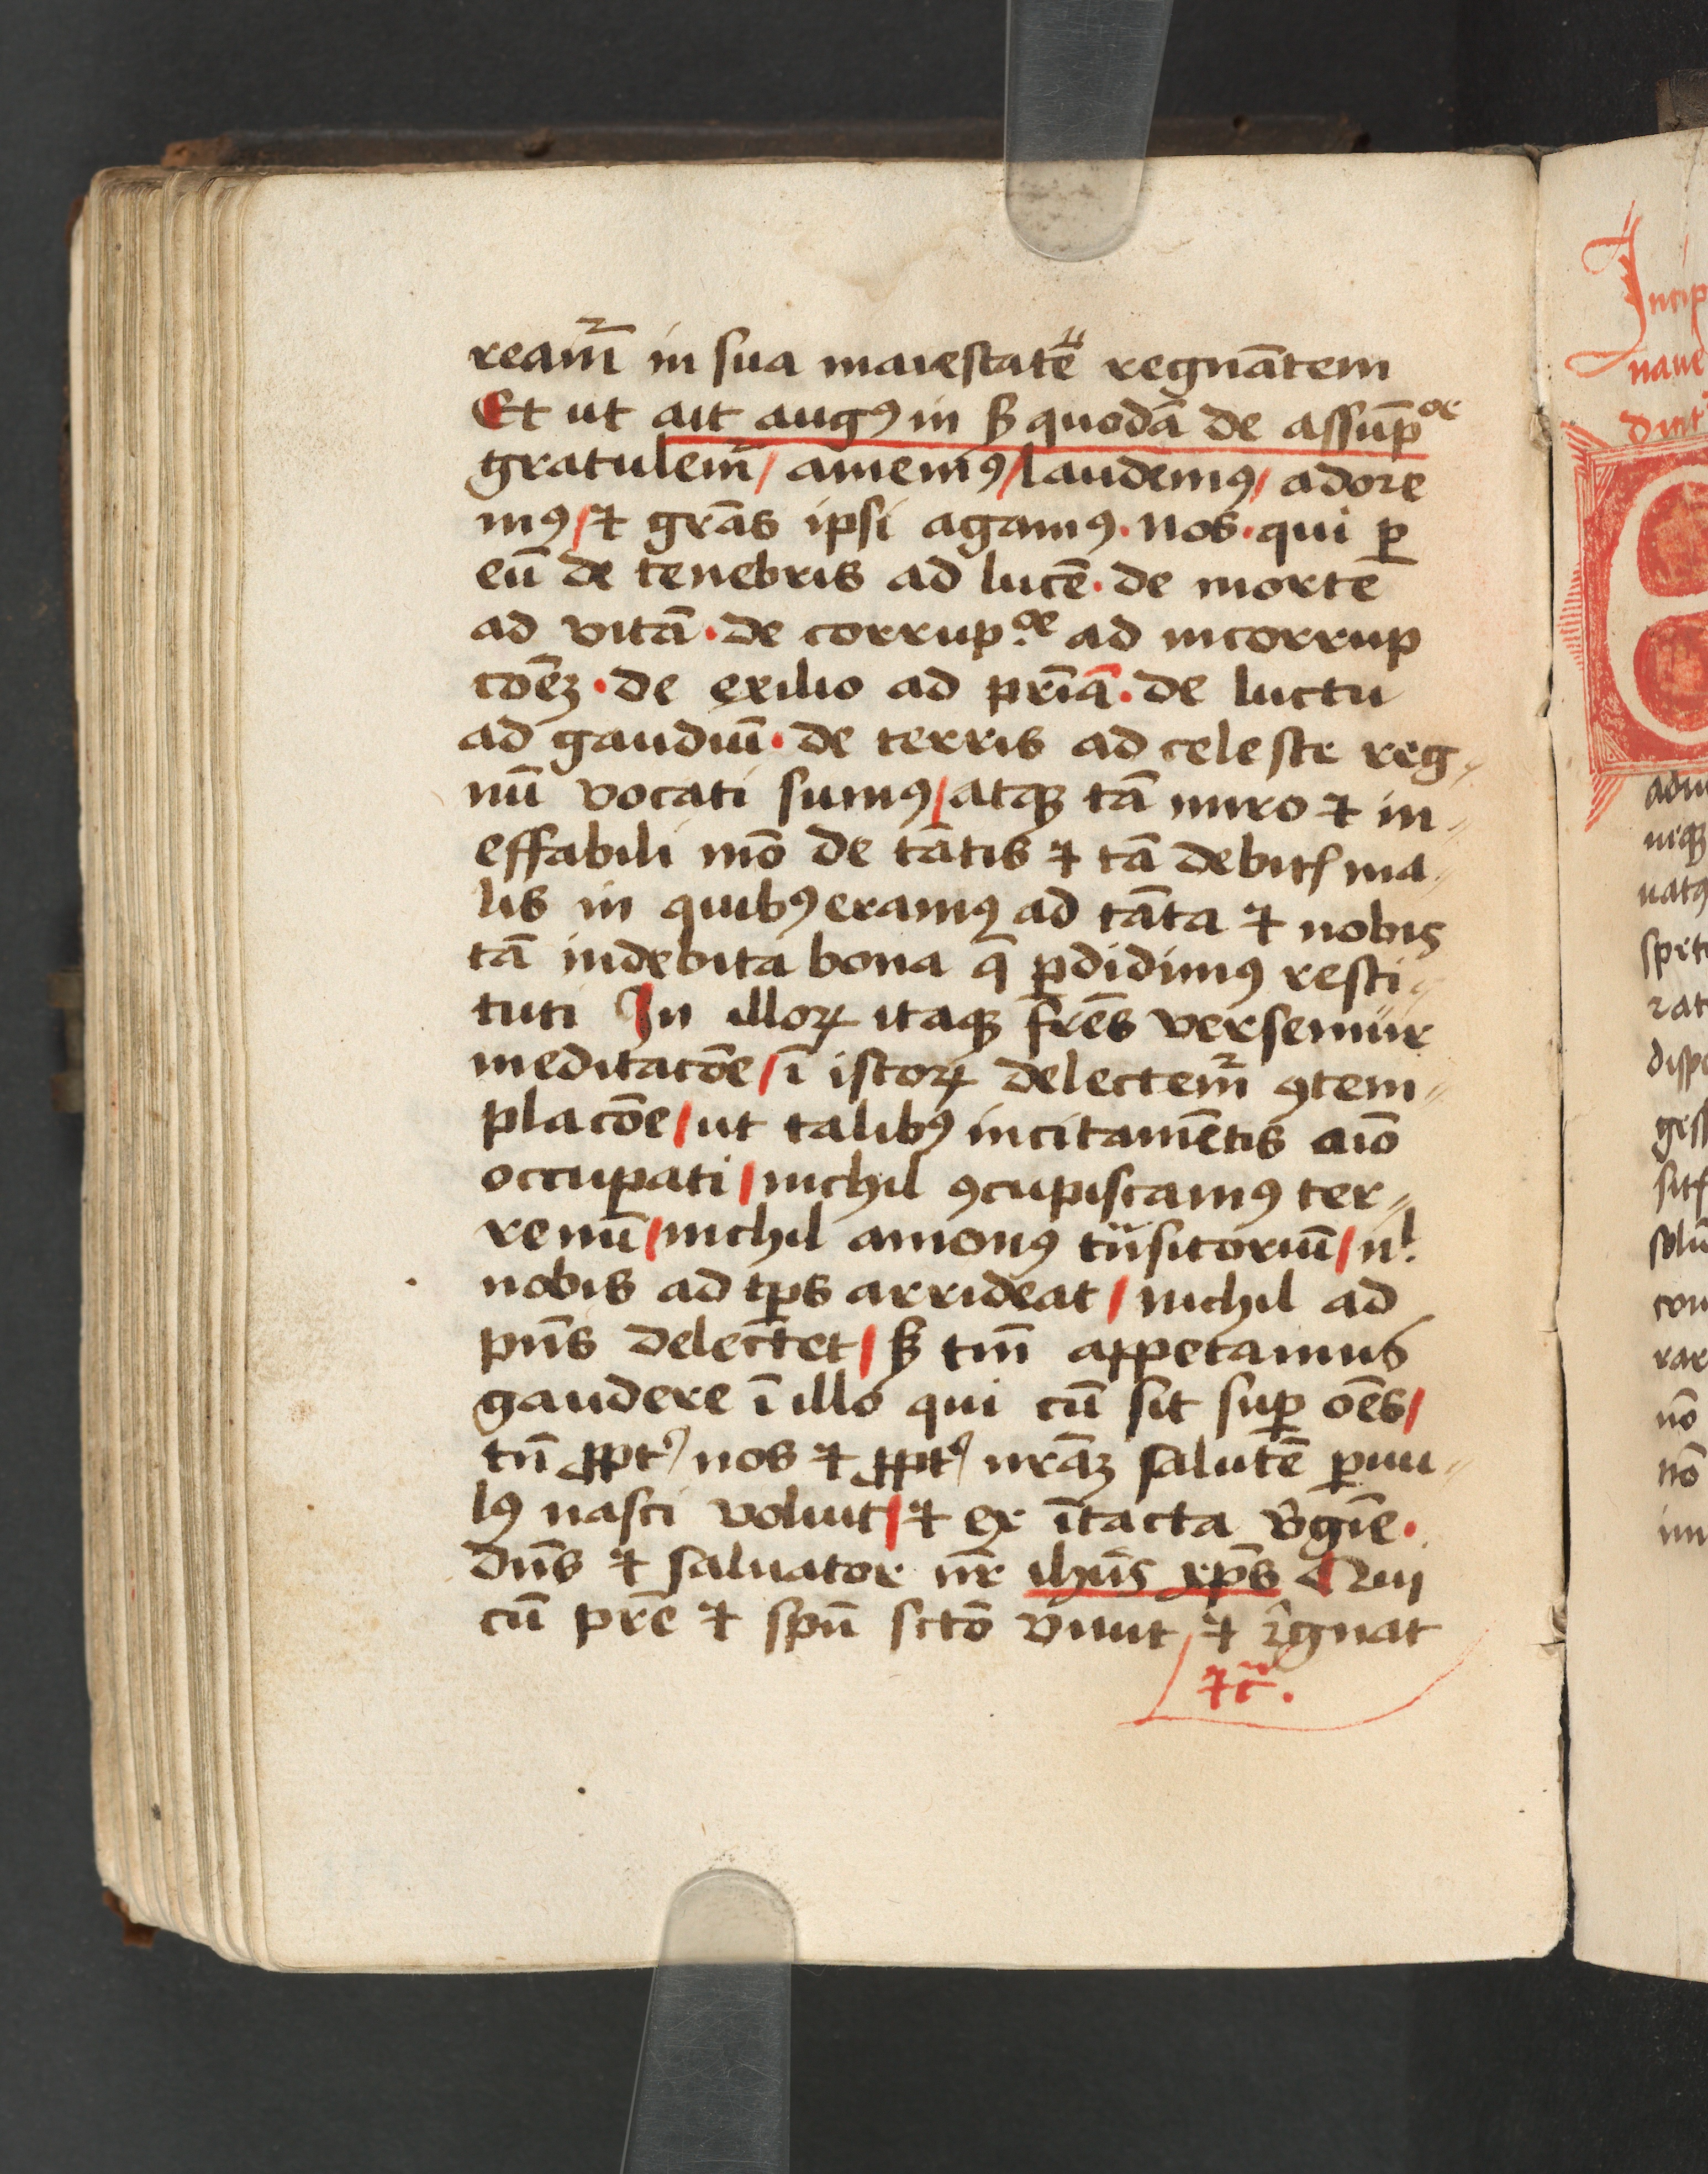 ream᷑ in sua maiestatē regnātem
Et ut ait augꝰ in ß quodā de assūp̄ᵒᵉ
gratulem᷑ / amemꝰ / laudemꝰ / adore
mꝰ / ⁊ grās ipsi agamꝰ · nos · qui ꝑ
eū de tenebris ad lucē · de morte
ad vitā · de corrup.ᵒᵉ ad incorrup
cōeꝫ · de exilio ad pr̄iā · de luctu
ad gaudiū · de terris ad celeste reg〃
nū vocati sumꝰ / atqꝫ tā miro ⁊ in〃
effabili mō de tātis ⁊ tā debitꝭ ma〃
lis in quibꝰ eramꝰ ad tāta ⁊ nobis
tā indebita bona q̄ ꝑdidimꝰ resti〃
tuti In illoꝝ itaqꝫ fr̄es versemur
meditacōe / ī istoꝝ delectem᷑ ꝯtem〃
placōe / ut talibꝰ incitamētis aīo
occupati / nichil ꝯcupiscamꝰ ter〃
renū / nichil amonꝰ tͣnsitoriū / nˡ.
nobis ad tꝑs arrideat / nichil ad
pn̄s delectet / ß tm̄ appetamus
gaudere ī illo qui cū sit suꝑ oēs /
tn̄ ꝓptꝰ nos ⁊ ꝓptꝰ nr̄aꝫ salutē ꝑuu〃
lꝰ nasci voluit / ⁊ ex ītacta v̓gīe ·
dn̄s ⁊ saluator nr̄ ihūs xp̄s Qui
cū pr̄e ⁊ spū sctō viuit ⁊ r̓gnat
⁊c̄.
Incip
naue
dint
adm
neqꝫ
natꝰ
spret
rat
dispe
gess
sitꝭ
solū
con
rar
nō
nō
im